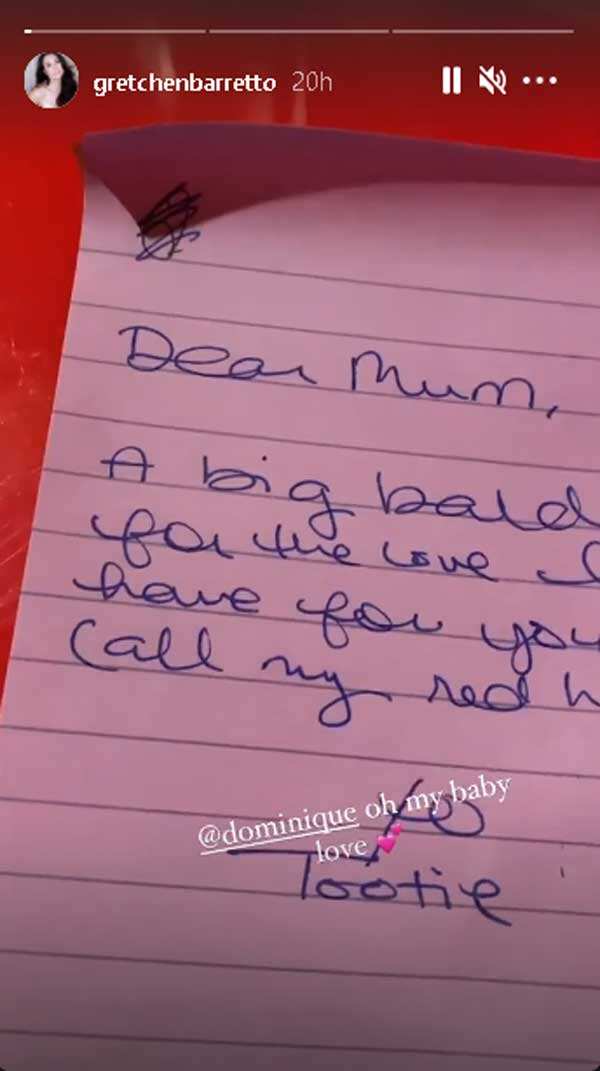 gretchenbarretto 20h
Dear Mum,
A big bald
for the love I
have for you
Call my red h
@dominique oh my baby
love 💕
Tootie